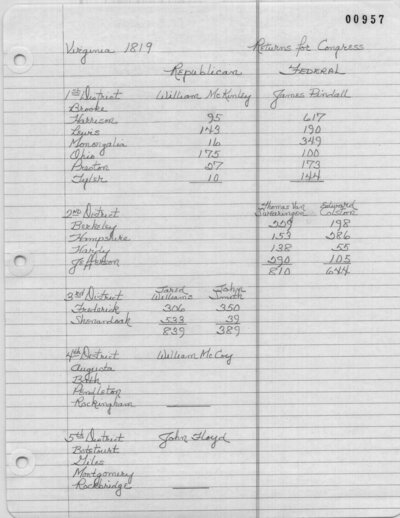 00957
Virginia 1819 Returns for Congress
Republican FEDERAL
1st District William McKinley James Pindall
Brooke
Harrison 95 617
Lewis 143 190
Monongalia 16 349
Ohio 175 100
Preston 27 173
Tyler 10 144
2nd District Thomas Van Swearingen Edward Colston
Berkeley 229 198
Hampshire 153 286
Hardy 138 55
Jefferson 290 105
810 644
3rd District Jared Williams John Smith
Frederick 306 350
Shenandoah 533 39
839 389
4th District William McCoy
Augusta
Bath
Pendleton
Rockingham
5th District John Floyd
Botetourt
Giles
Montgomery
Rockbridge